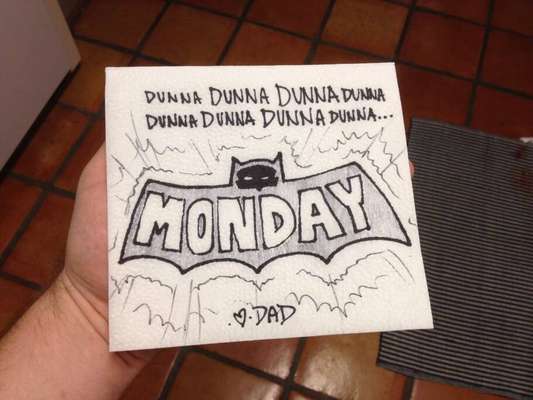 DUNNA DUNNA DUNNA DUNNA
DUNNA DUNNA DUNNA DUNNA...
MONDAY
♡. DAD